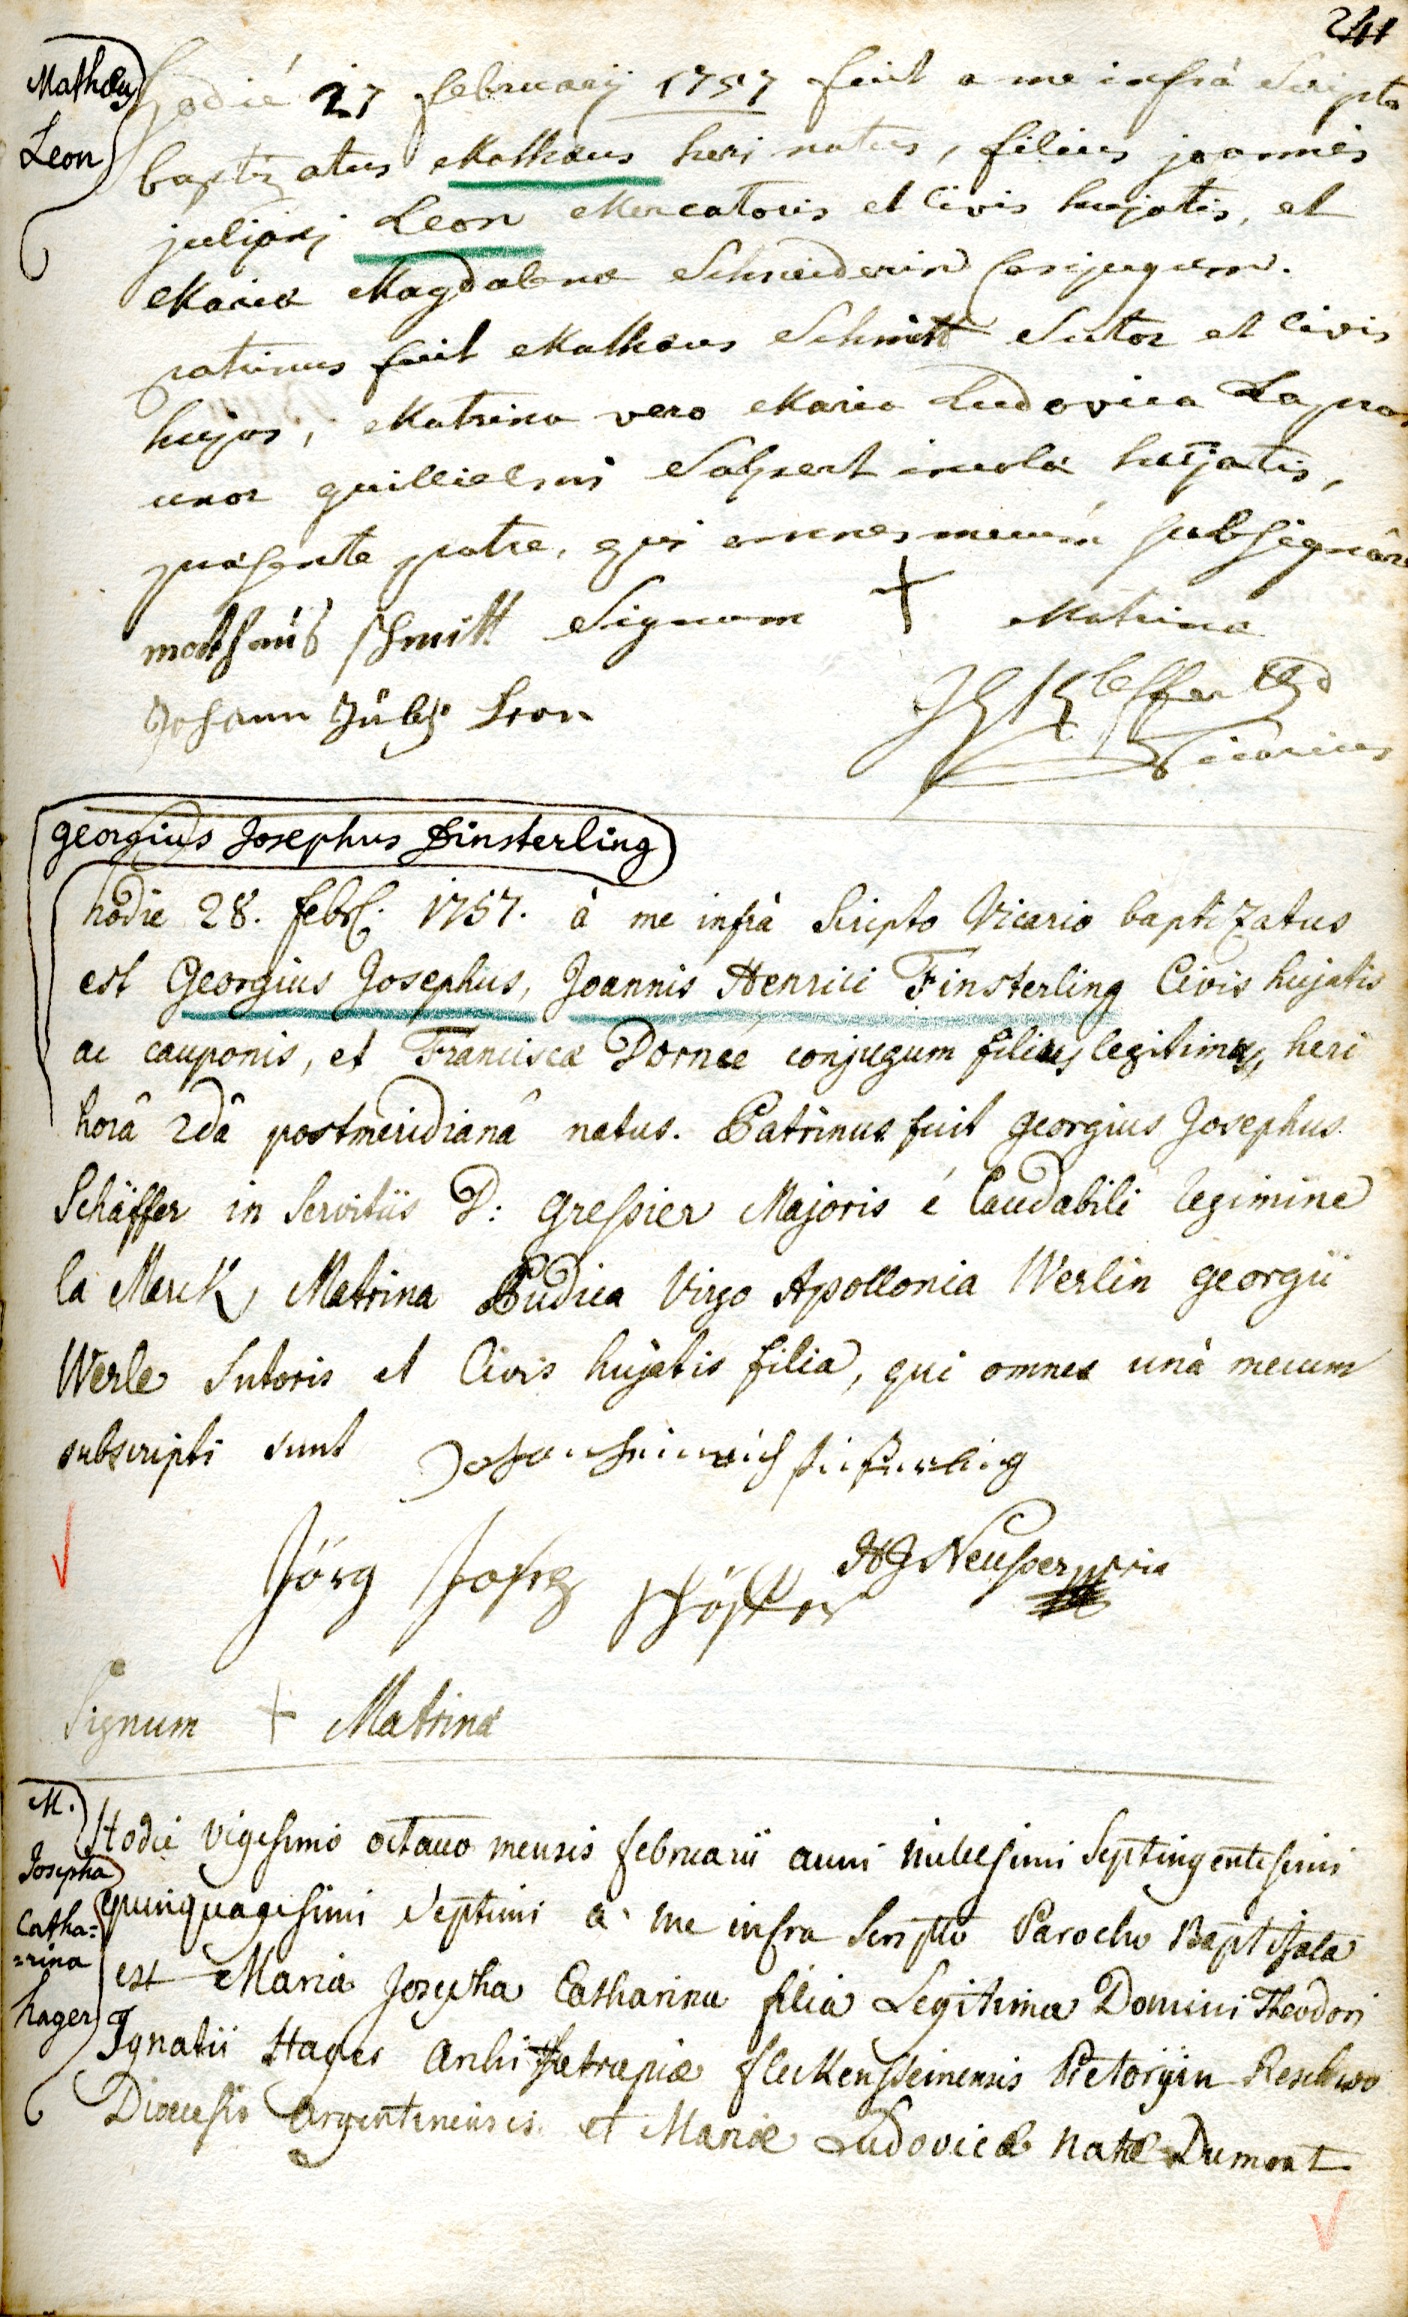 241
Mathæus
Leon
hodié 27 february 1757 fuit a me infrá Scripto
baptizatus Mathæus heri natus, filius joannis
julipsij Leon Mercatoris et Civis hujatis, et
Mariæ Magdalenæ Schneiderin Conjugum.
patrinus fuit Mathæus Schmitt Sutor et Civis
hujas, Matrina vero Maria Ludovica
uxor guillielmi incola hujatis,
præsente patre, qui omnes mecum subsignâre
mathäuß schmitt Signum + Matrinæ
Johann Leon
Vicarius
georgius Josephus Finsterling
hodie 28. febr. 1757. à me infrà Scripto Vicario baptizatus
est Georgius Josephus, Joannis Henrici Finsterling Civis hujatis
ac cauponis, et Franciscæ Dornée conjugum filius legitimus, heri
horâ 2dâ postmeridianâ natus. Patrinus fuit georgius Josephus
Schäffer in Servitiis D: Gressier Majoris é laudabili regimine
la Marck, Matrina Pudica Virgo Apollonia Werlin georgii
Werle Sutoris et Civis hujatis filia, qui omnes unà mecum
subscripti sunt Johan heinrich finsterling
Jörg Josep schöffer
Signum + Matrinæ
M.
Josepha
Catha=
=rina
hager
Hodie vigesimo octavo mensis februarii anni millesimi Septingentesimi
quinquagesimi Septimi a me infra Scripto Parocho Baptisata
est Maria Josepha Catharina filia Legitima Domini Theodori
Ignatii Hager Archi Satrapiæ fleckensteinensis
Dioecesis Argentinensis et Mariæ Ludovicæ Natæ Dumont